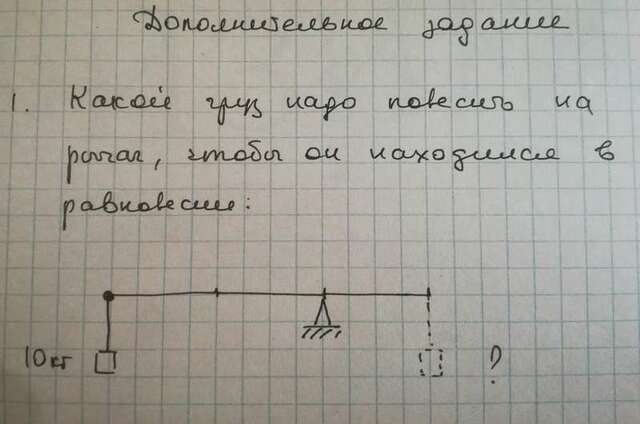 Дополнительное задание
1. Какой груз надо повесить на
рычаг, чтобы он находился в
равновесии:
10кг ?